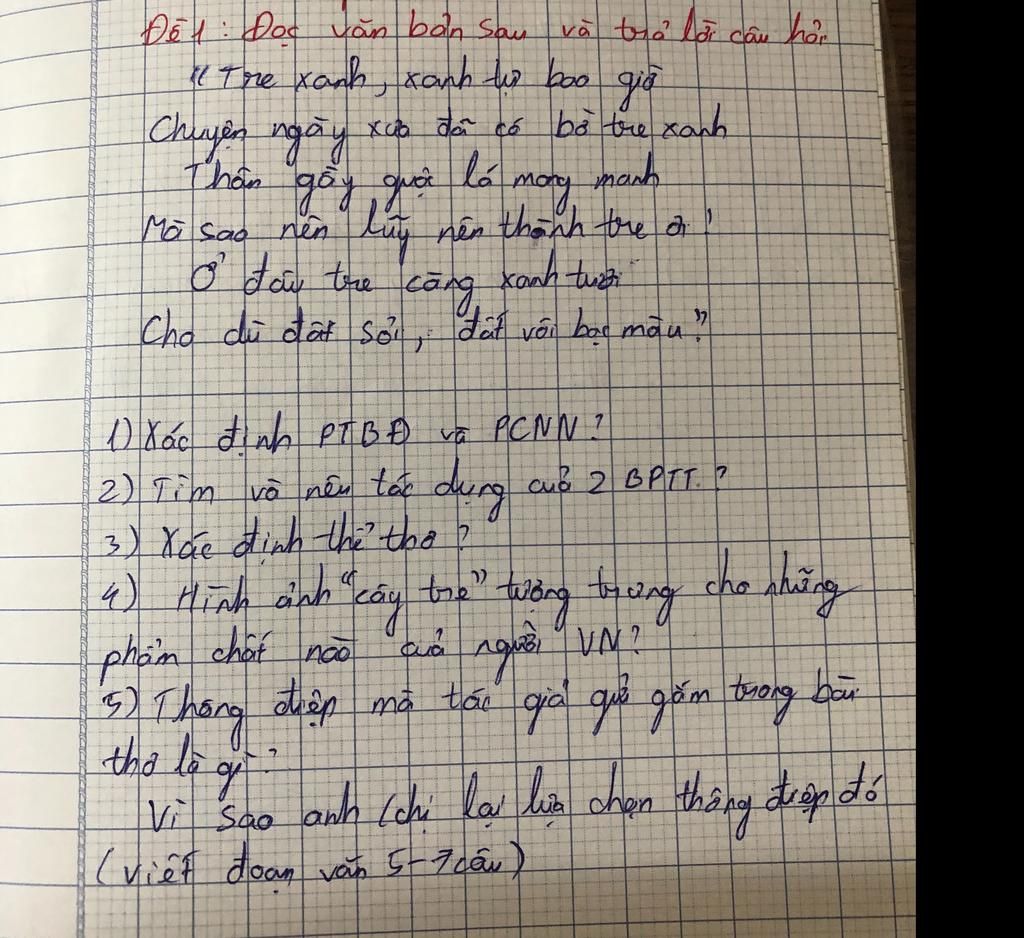 Đề 1: Đọc văn bản sau và trả lời câu hỏi
"Tre xanh, xanh tự bao giờ
Chuyện ngày xưa đã có bờ tre xanh
Thân gầy guộc lá mong manh
Mà sao nên lũy nên thành tre ơi!
Ở đâu tre cũng xanh tươi
Cho dù đất sỏi, đất vôi bạc màu"
1) Xác định PTBĐ và PCNN?
2) Tìm và nêu tác dụng của 2 BPTT.?
3) Xác định thể thơ?
4) Hình ảnh "cây tre" tượng trưng cho những
phẩm chất nào của người VN?
5) Thông điệp mà tác giả gửi gắm trong bài
thơ là gì?
Vì sao anh/chị lại lựa chọn thông điệp đó
(viết đoạn văn 5-7 câu)